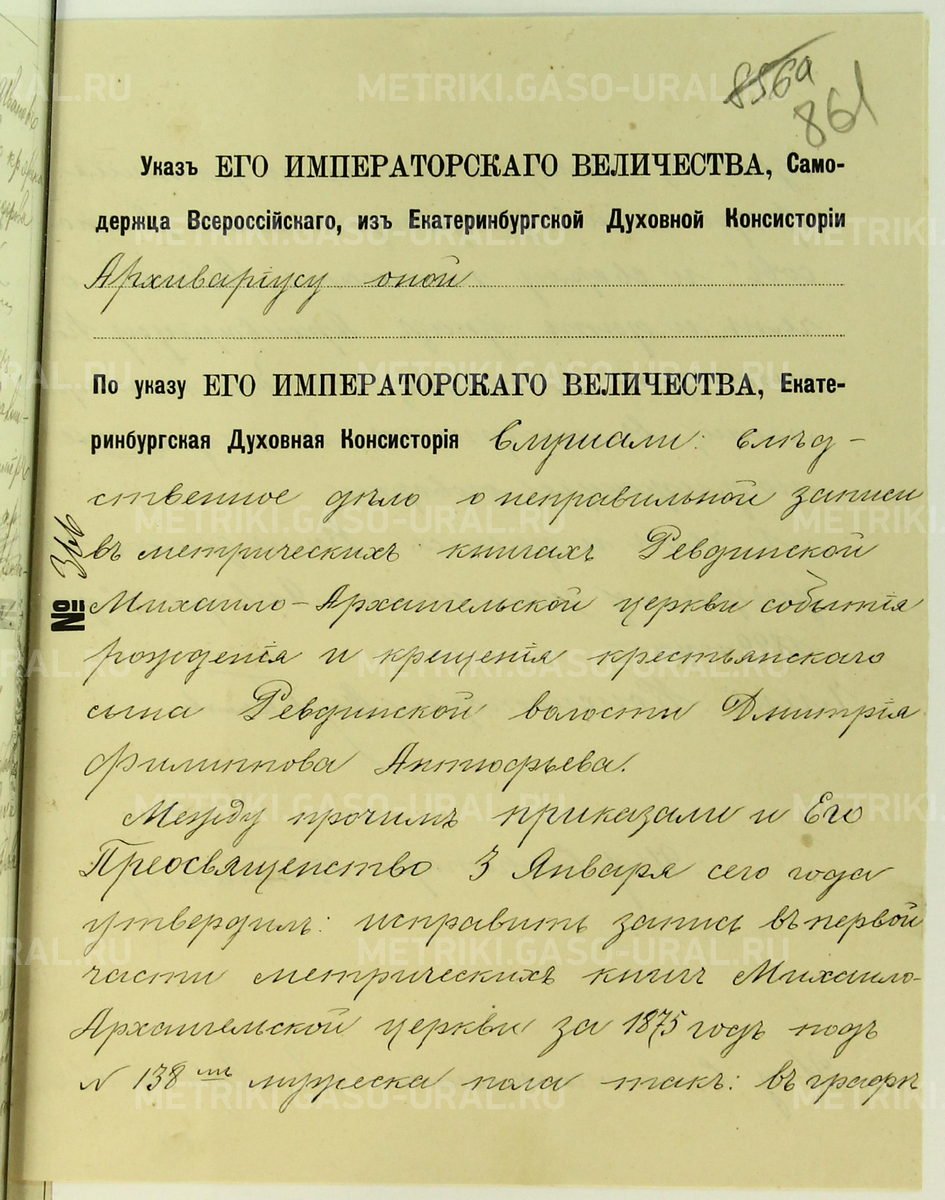 856а
861
Указъ ЕГО ИМПЕРАТОРСКАГО ВЕЛИЧЕСТВА, Само-
держца Всероссійскаго, изъ Екатеринбургской Духовной Консисторіи
Архиваріусу оной
По указу ЕГО ИМПЕРАТОРСКАГО ВЕЛИЧЕСТВА, Екате-
ринбургская Духовная Консисторія слушали: слѣд-
ственное дѣло о неправильной записи
въ метрическихъ книгахъ Ревдинской
№ 366
Михаило-Архангельской церкви событія
рожденія и крещенія крестьянскаго
сына Ревдинской волости Дмитрія
Филиппова Антюфьева.
Между прочимъ приказали и Его
Преосвященство 3 Января сего года
утвердилъ: исправить запись въ первой
части метрическихъ книгъ Михаило-
Архангельской церкви за 1875 годъ подъ
№ 138 мъ мужеска пола такъ: въ графѣ
METRIKI.GASO-URAL.RU